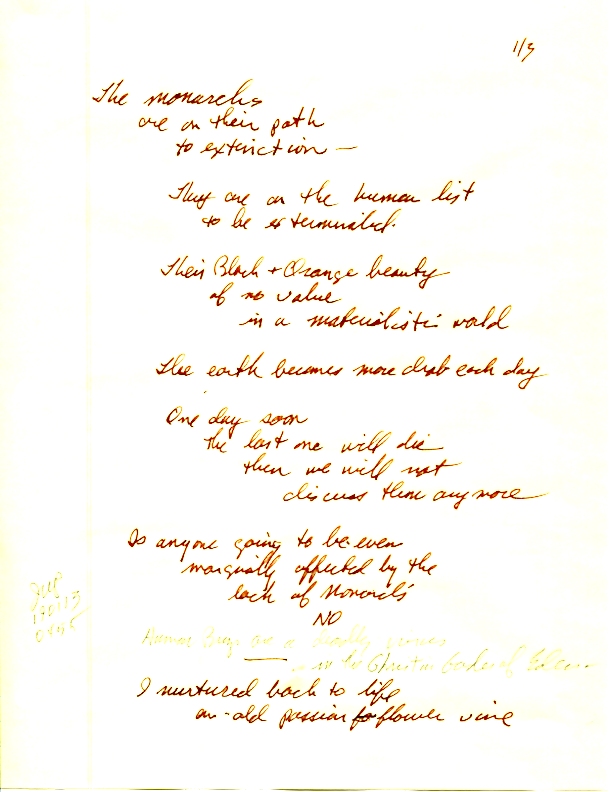 1/3
The monarchs
are on their path
to extinction —
They are on the human list
to be exterminated.
Their Black + Orange beauty
of no value
in a materialistic world
The earth becomes more drab each day
One day soon
the last one will die
then we will not
discuss them anymore
Is anyone going to be even
marginally affected by the
lack of Monarchs
NO
Human Beings are a deadly
in the Garden of
I nurtured back to life
an old passion flower vine